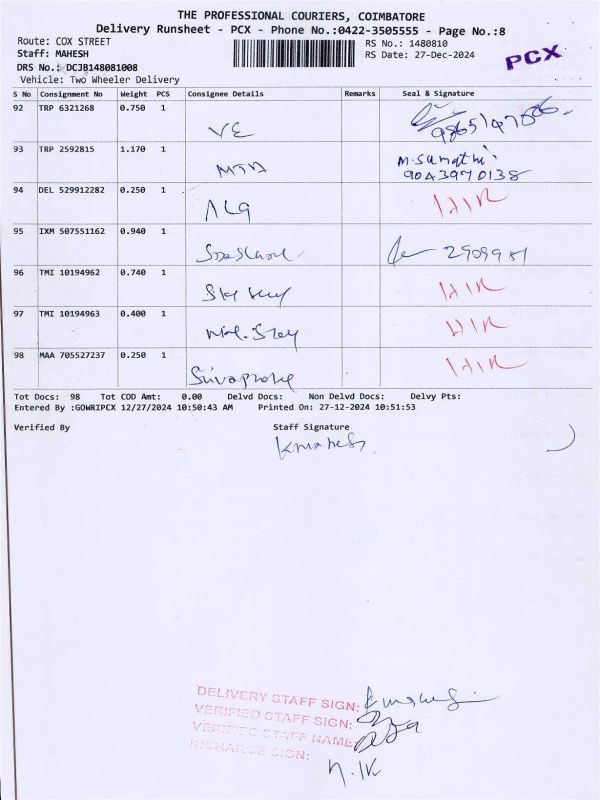 THE PROFESSIONAL COURIERS, COIMBATORE
Delivery Runsheet - PCX - Phone No.:0422-3505555 - Page No.:8
Route: COX STREET
RS No.: 1480810
Staff: MAHESH
RS Date: 27-Dec-2024
PCX
DRS No.: DCJB148081008
Vehicle: Two Wheeler Delivery
S No Consignment No Weight PCS Consignee Details Remarks Seal & Signature
92 TRP 6321268 0.750 1
VE
93 TRP 2592815 1.170 1 M.Sumathi
9043970138
94 DEL 529912282 0.250 1
ALG
95 IXM 507551162 0.940 1
2909981
96 TMI 10194962 0.740 1
97 TMI 10194963 0.400 1
98 MAA 705527237 0.250 1
Tot Docs: 98 Tot COD Amt: 0.00 Delvd Docs: Non Delvd Docs: Delvy Pts:
Entered By :GOWRIPCX 12/27/2024 10:50:43 AM Printed On: 27-12-2024 10:51:53
Verified By Staff Signature
K mahesh
DELIVERY STAFF SIGN:
VERIFIED STAFF SIGN:
VERIFIED STAFF NAME:
INCHARGE SIGN: